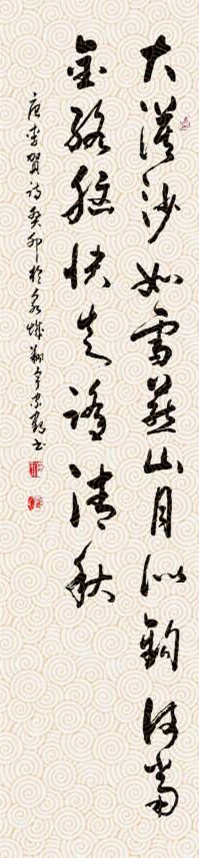 大漠沙如雪燕山月似钩何当
金络脑快走踏清秋
唐李贺诗癸卯於泉城